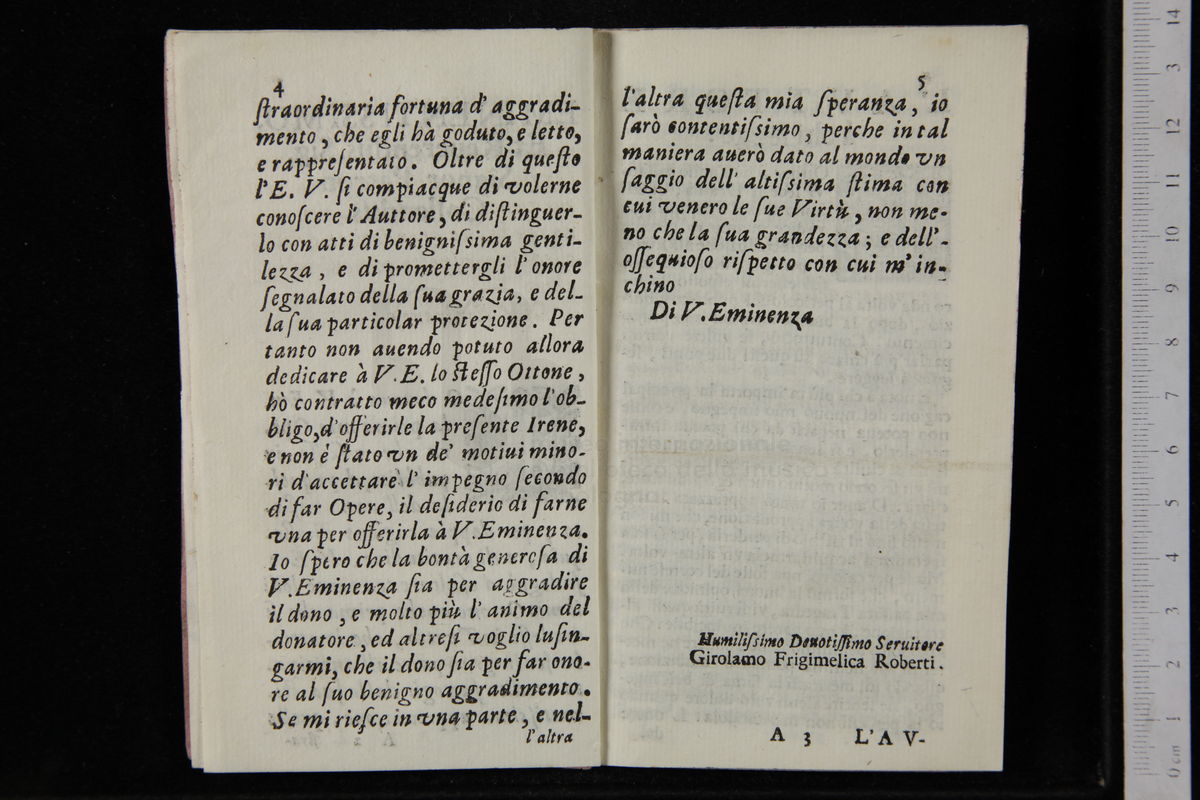 4
ſtraordinaria fortuna d' aggradi-
mento, che egli hà goduto, e letto,
e rappreſentato. Oltre di queſto
l'E. V. ſi compiacque di volerne
conoſcere l'Auttore, di diſtinguer-
lo con atti di benigniſsima genti-
lezza, e di promettergli l'onore
ſegnalato della ſua grazia, e del-
la ſua particolar protezione. Per
tanto non auendo potuto allora
dedicare à V.E. lo ſteſſo Ottone,
hò contratto meco medeſimo l'ob-
bligo, d'offerirle la preſente Irene,
e non è ſtato vn de' motiui mino-
ri d'accettare l' impegno ſecondo
di far Opere, il deſiderio di farne
vna per offerirla à V.Eminenza.
Io ſpero che la bontà generoſa di
V.Eminenza ſia per aggradire
il dono, e molto più l' animo del
donatore, ed altreſi voglio luſin-
garmi, che il dono ſia per far ono-
re al ſuo benigno aggradimento.
Se mi rieſce in vna parte, e nel-
l'altra
5
l'altra queſta mia ſperanza, io
ſarò contentiſsimo, perche in tal
maniera auerò dato al mondo vn
ſaggio dell' altiſsima ſtima con
cui venero le ſue Virtù, non me-
no che la ſua grandezza; e dell'-
oſſequioſo riſpetto con cui m'in-
chino
Di V.Eminenza
Humiliſsimo Deuotiſſimo Seruitore
Girolamo Frigimelica Roberti.
A 3 L'AV-
14
3
12
11
10
9
8
7
6
5
4
3
2
1
0 cm